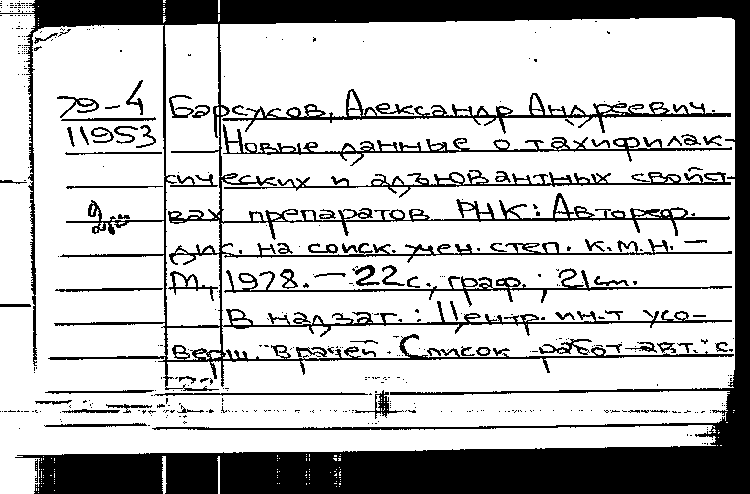 79-4 Барсуков, Александр Андреевич.
11953 Новые данные о тахифилак-
сических и адъювантных свойст-
вах препаратов РНК: Автореф.
дис. на соиск. учен. степ. к.м.н. —
М., 1978. — 22 с., граф.; 21 см.
В надзаг.: Центр. ин-т усо-
верш. врачей. Список работ авт.: с.